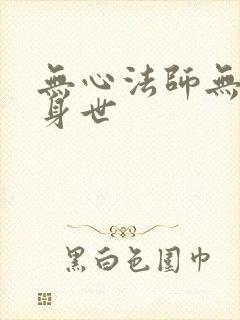 無心法師無
身世
黑白色圍巾